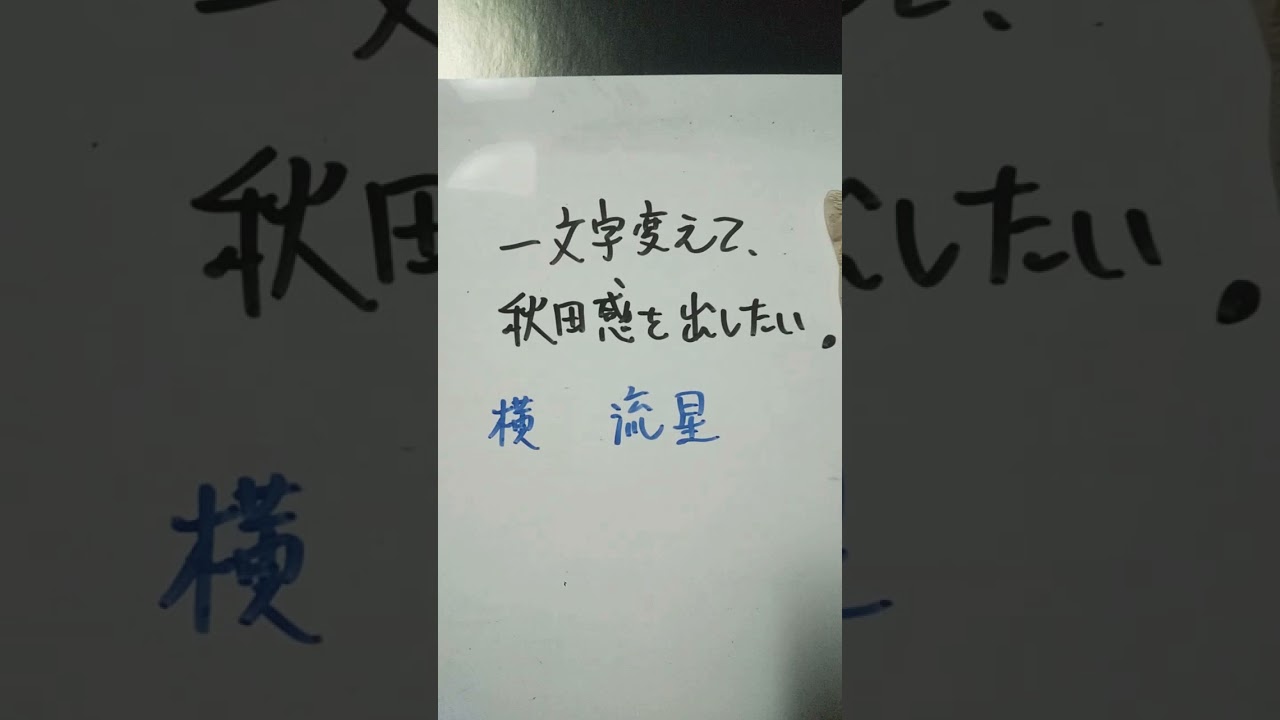 一文字変えて、
秋田感を出したい。
横　流星